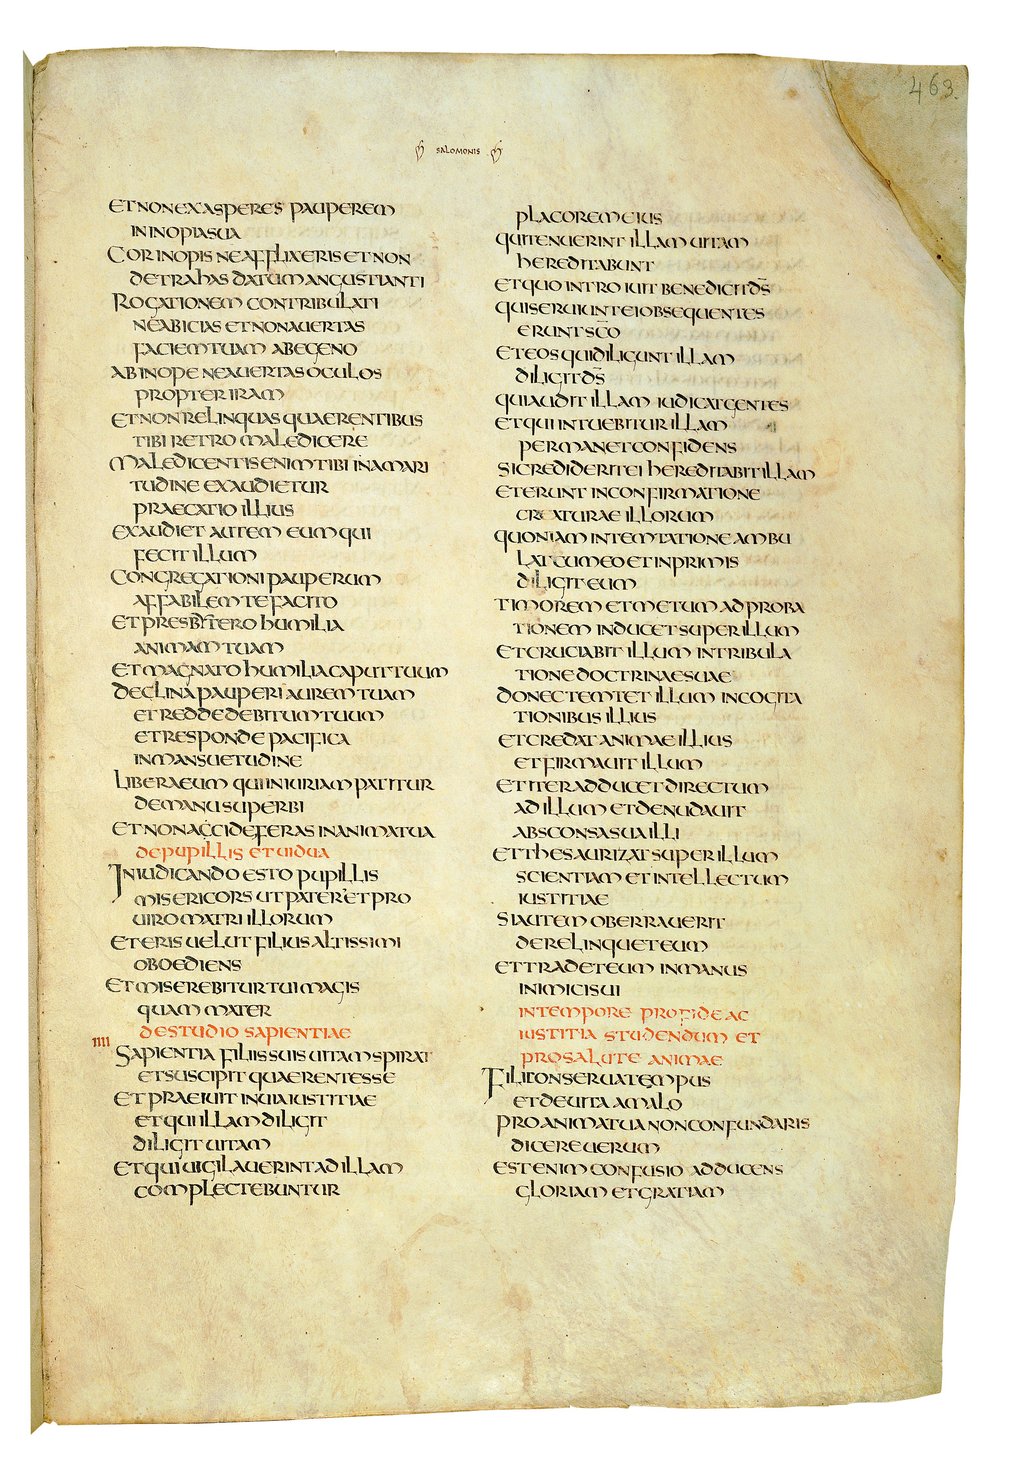 463.
SALOMONIS
ETNONEXASPERES PAUPEREM
ININOPIASUA
CORINOPIS NEAFFLIXERISETNON
DETRAHAS DATUMANGUSTIANTI
ROGATIONEM CONTRIBULATI
NEABICIAS ETNONAUERTAS
FACIEMTUAM ABEGENO
ABINOPE NEAUERTASOCULOS
PROPTERIRAM
ETNONRELINQUAS QUAERENTIBUS
TIBI RETRO MALEDICERE
MALEDICENTISENIMTIBI INAMARI
TUDINE EXAUDIETUR
PRAECATIO ILLIUS
EXAUDIET AUTEM EUMQUI
FECIT ILLUM
CONGREGATIONI PAUPERUM
AFFABILEMTEFACITO
ETPRESBYTERO HUMILIA
ANIMAM TUAM
ETMAGNATO HUMILIACAPUTTUUM
DECLINAPAUPERI AUREM TUAM
ETREDDEDEBITUMTUUM
ETRESPONDE PACIFICA
INMANSUETUDINE
LIBERAEUM QUIINIURIAM PATITUR
DEMANUSUPERBI
ETNONACCIDEFERAS INANIMATUA
DEPUPILLIS ETUIDUA
INIUDICANDO ESTO PUPILLIS
MISERICORS UTPATER ETPRO
UIROMATRI ILLORUM
ETERIS UELUT FILIUS ALTISSIMI
OBOEDIENS
ETMISEREBITURTUI MAGIS
QUAM MATER
DESTUDIO SAPIENTIAE
IIII
SAPIENTIA FILIISSUIS UITAMSPIRAT
ETSUSCIPIT QUAERENTESSE
ETPRAEIUIT INUIAIUSTITIAE
ETQUIILLAMDILIGIT
DILIGIT UITAM
ETQUI UIGILAUERINTADILLAM
COMPLECTEBUNTUR
PLACOREMEIUS
QUITENUERINT ILLAM UITAM
HEREDITABUNT
ETQUO INTROIUIT BENEDICITDS̄
QUISERUIUNTEIOBSEQUENTES
ERUNTSC̄O
ETEOSQUIDILIGUNTILLAM
DILIGITDS̄
QUIAUDIT ILLAM IUDICATGENTES
ETQUIINTUEBITURILLAM
PERMANETCONFIDENS
SICREDIDERITEI HEREDITABITILLAM
ETERUNT INCONFIRMATIONE
CREATURAE ILLORUM
QUONIAM INTEMTATIONEAMBU
LATCUMEOETINPRIMIS
DILIGITEUM
TIMOREM ETMETUMADPROBA
TIONEM INDUCETSUPERILLUM
ETCRUCIABIT ILLUM INTRIBULA
TIONEDOCTRINAESUAE
DONECTEMTET ILLUM INCOGITA
TIONIBUS ILLIUS
ETCREDAT ANIMAE ILLIUS
ETFIRMAUIT ILLUM
ETITERADDUCETDIRECTUM
ADILLUM ETDENUDAUIT
ABSCONSASUAILLI
ETTHESAURIZATSUPERILLUM
SCIENTIAM ETINTELLECTUM
IUSTITIAE
SIAUTEM OBERRAUERIT
DERELINQUETEUM
ETTRADETEUM INMANUS
INIMICISUI
INTEMPORE PROFIDEAC
IUSTITIA STUDENDUM ET
PROSALUTE ANIMAE
FILICONSERUATEMPUS
ETDEUITA AMALO
PROANIMATUANONCONFUNDARIS
DICEREUERUM
ESTENIM CONFUSIO ADDUCENS
GLORIAM ETGRATIAM